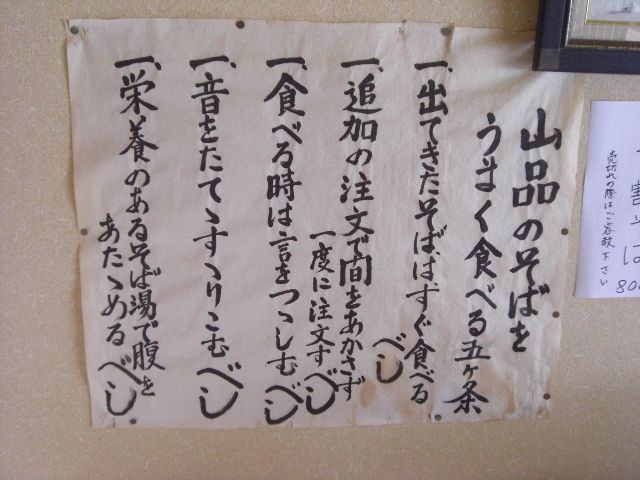 山品のそばを
うまく食べる五ヶ条
一、出てきたそばはすぐ食べる
べし
一、追加の注文で間をあかさず
一度に注文すべし
一、食べる時は言をつゝしむべし
一、音をたてゝすゝりこむべし
一、栄養のあるそば湯で腹を
あたゝめるべし
売切れの際はご容赦下さい